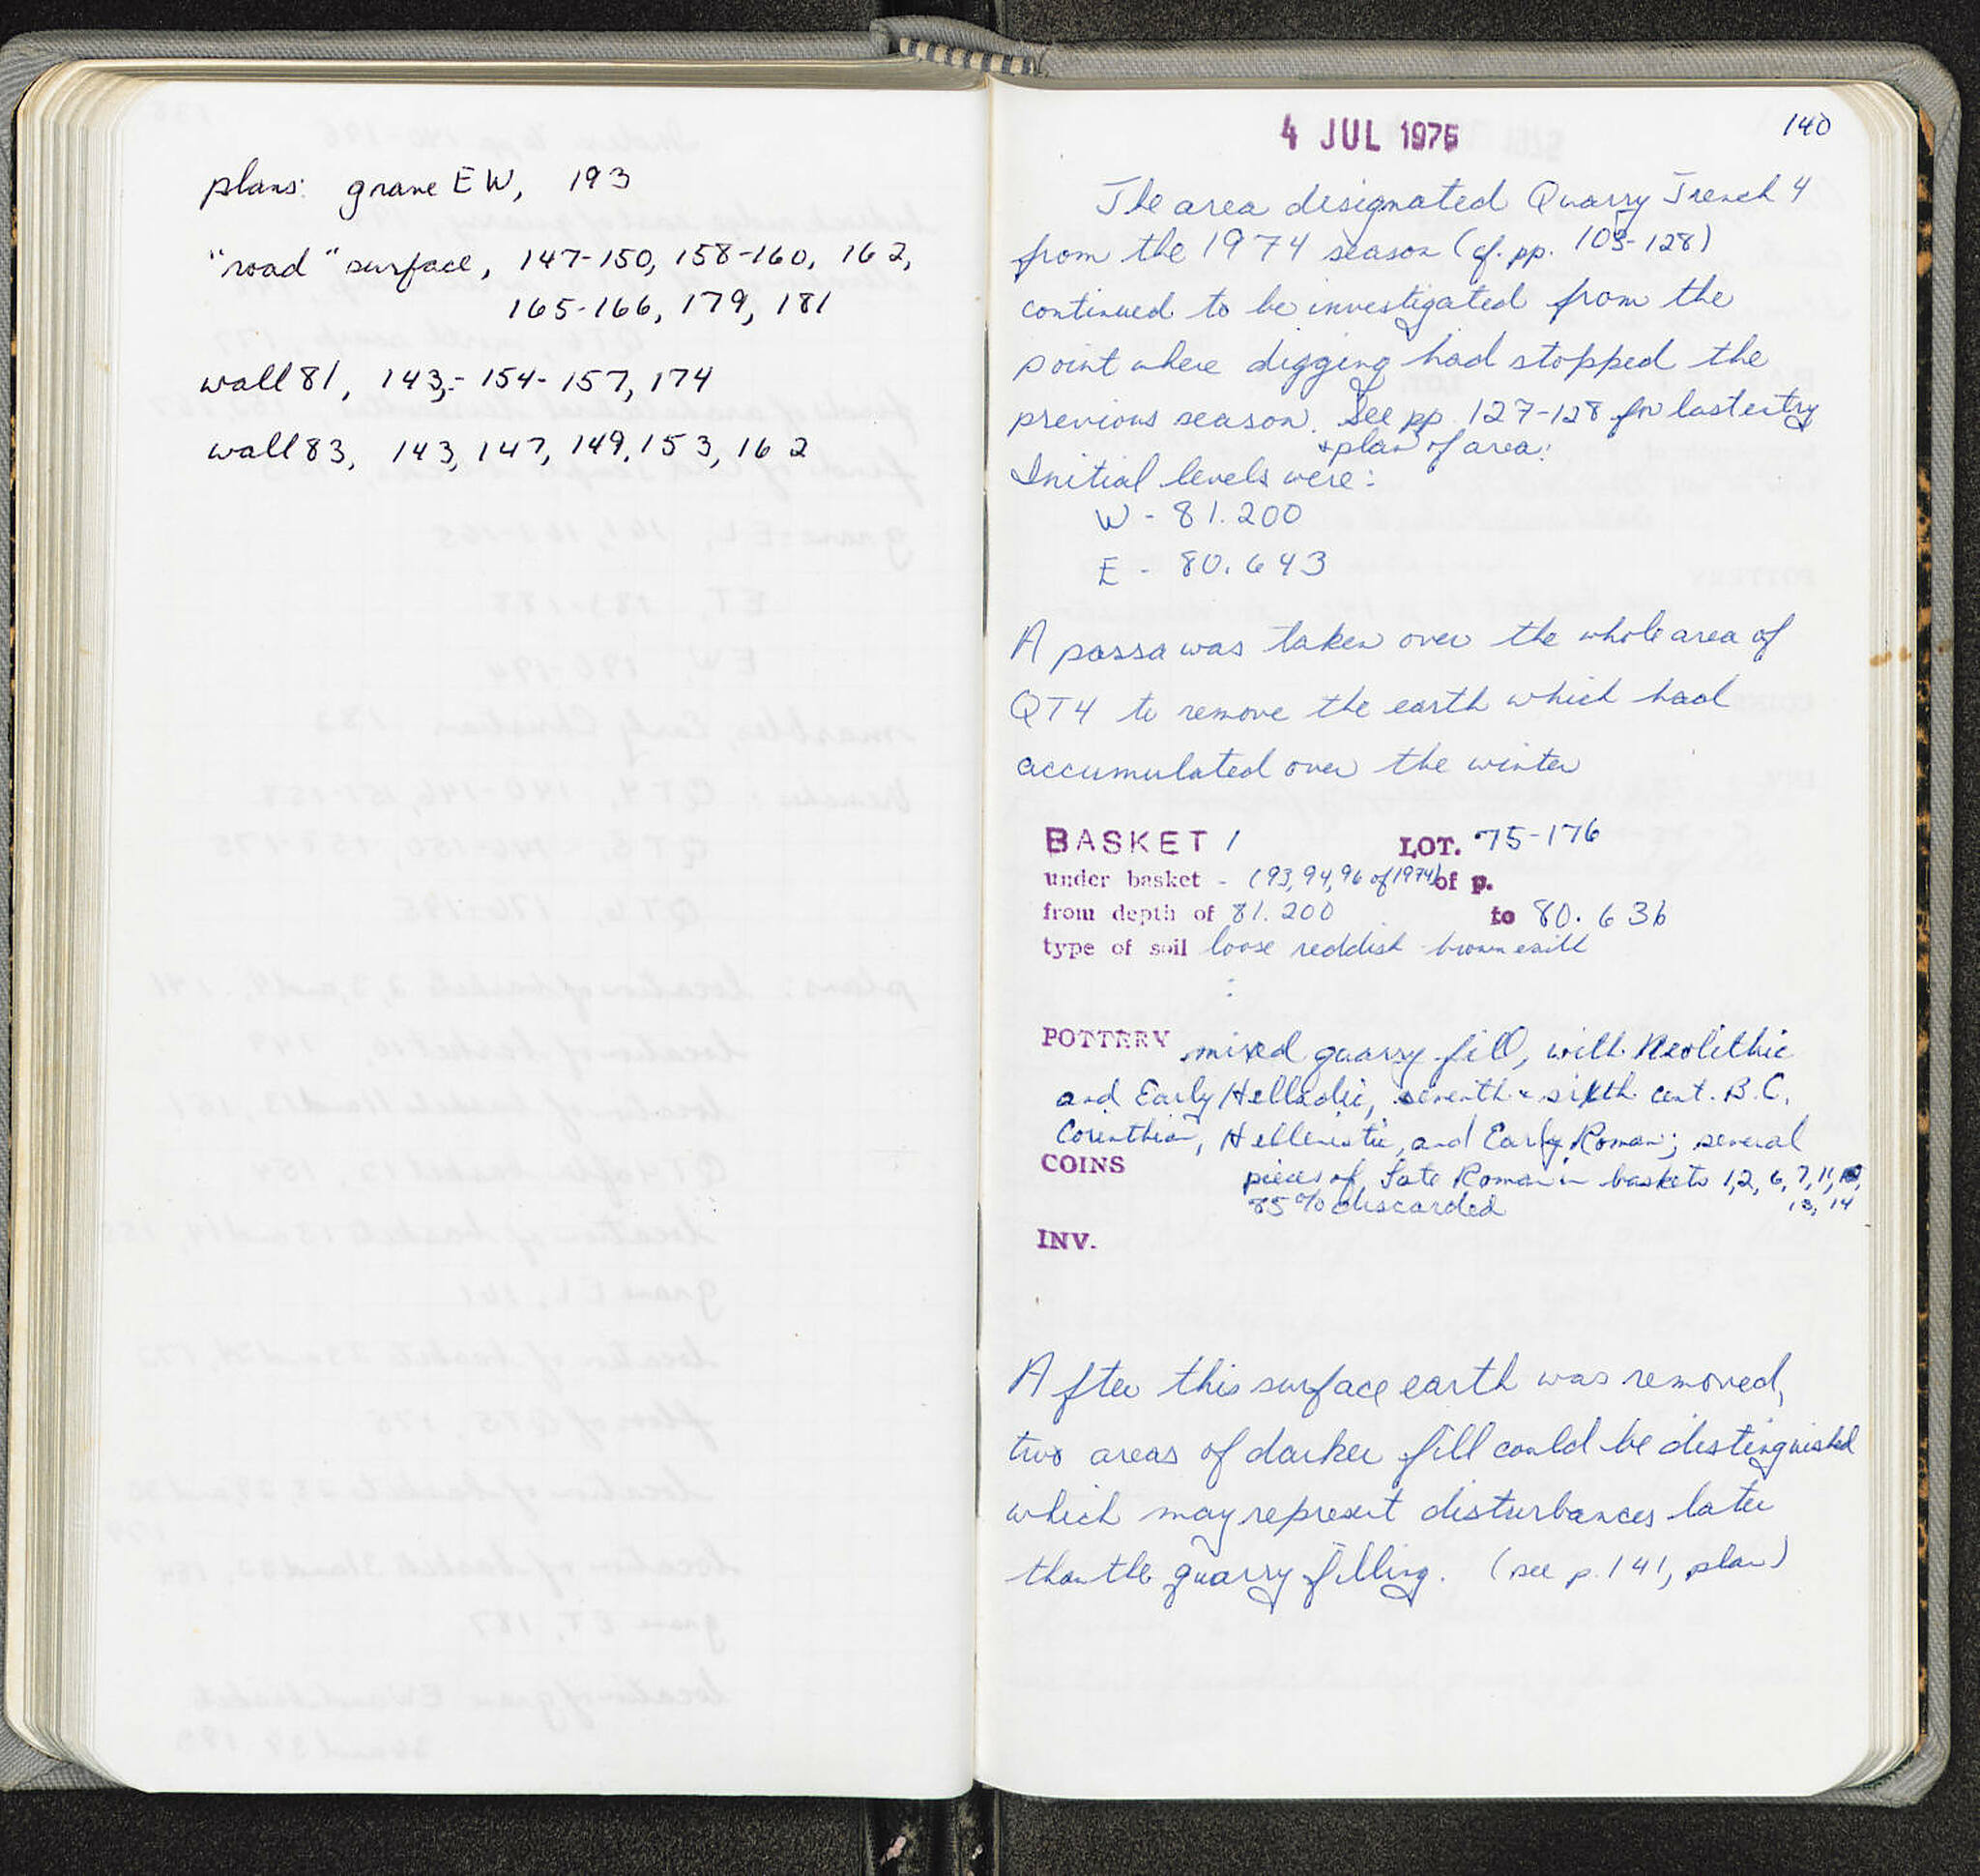 plans: grave EW, 193
"road" surface, 147-150, 158-160, 162,
165-166, 179, 181
wall 81, 143,- 154-157, 174
wall 83, 143, 147, 149, 153, 162
4 JUL 1975
140
The area designated Quarry Trench 4
from the 1974 season (cf. pp. 103-128)
continued to be investigated from the
point where digging had stopped the
previous season. See pp 127-128 for last entry
+ plan of area.
Initial levels were:
W - 81.200
E - 80.643
A passa was taken over the whole area of
QT4 to remove the earth which had
accumulated over the winter
BASKET 1 LOT. 75-176
under basket - (93, 94, 96 of 1974) of p.
from depth of 81.200 to 80.636
type of soil loose reddish brown earth
POTTERY mixed quarry fill, with Neolithic
and Early Helladic, seventh & sixth cent. B.C.
Corinthian, Hellenistic, and Early Roman; several
COINS pieces of Late Roman in baskets 1, 2, 6, 7, 11,
13, 14
85% discarded
INV.
After this surface earth was removed,
two areas of darker fill could be distinguished
which may represent disturbances later
than the quarry filling. (see p. 141, plan)